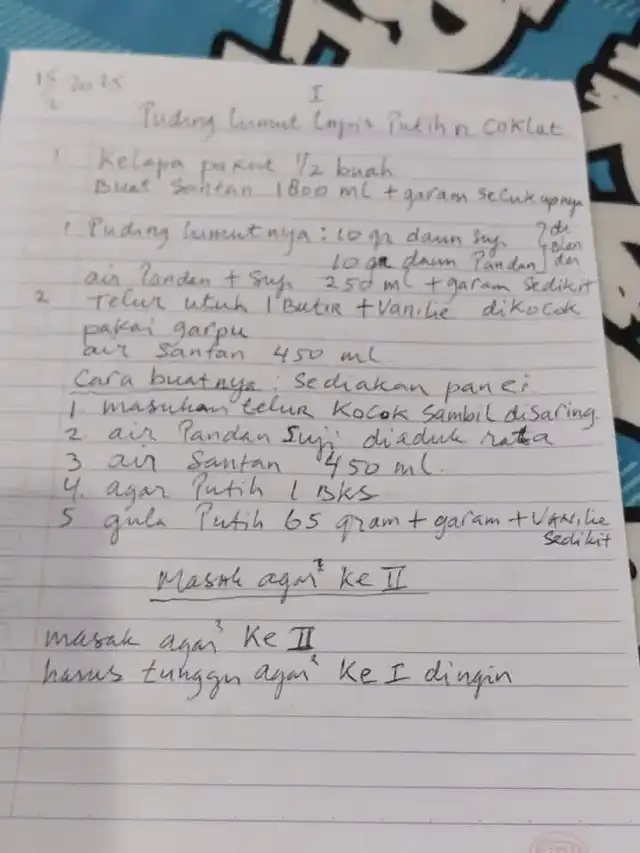 15 2025
2
I
Puding Lumut Lapis Putih n Coklat
1 Kelapa parut 1/2 buah
Buat Santan 1800 ml + garam secukupnya
1 Puding Lumutnya : 10 gr daun suji } di
10 gr daun Pandan } blen der
air Pandan + Suji 250 ml + garam sedikit
2 Telur utuh 1 Butir + Vanilie dikocok
pakai garpu
air Santan 450 ml
Cara buatnya : Sediakan panci
1 masukan telur Kocok Sambil disaring.
2 air Pandan Suji diaduk rata
3 air Santan 450 ml.
4. agar Putih 1 Bks
5 gula Putih 65 gram + garam + Vanilie
sedikit
Masak agar² Ke II
masak agar² Ke II
harus tunggu agar² Ke I dingin